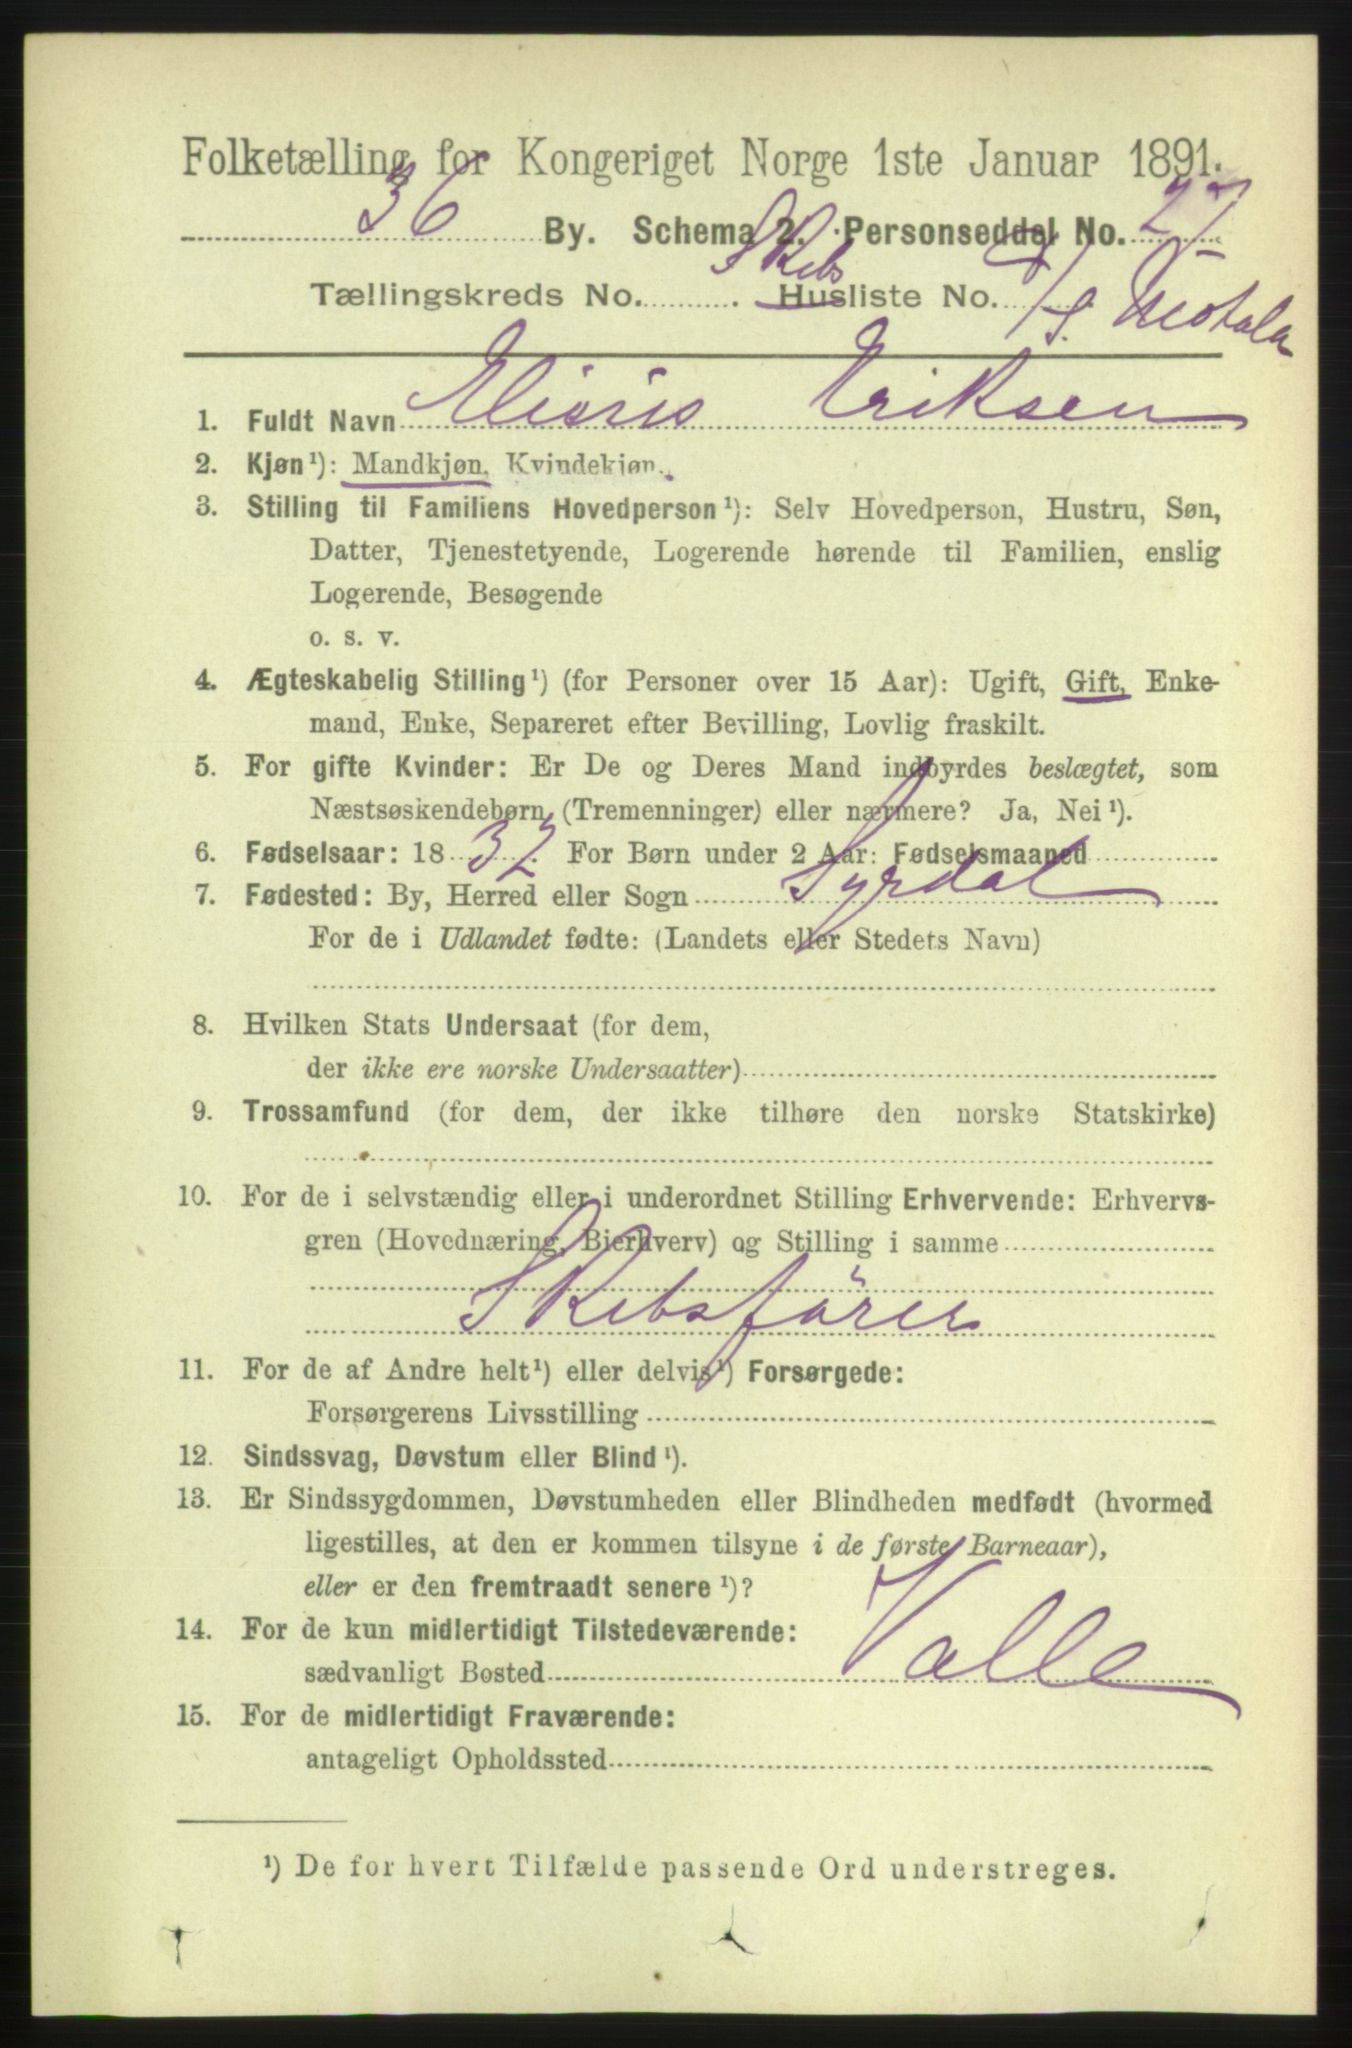 Folketælling for Kongeriget Norge 1ste Januar 1891.
36 By. Schema 2. Personseddel No. 27
Skibs
Tællingskreds No. Husliste No. S. Motala
1. Fuldt Navn Eriksen
2. Kjøn¹): Mandkjøn, Kvindekjøn.
3. Stilling til Familiens Hovedperson¹): Selv Hovedperson, Hustru, Søn,
Datter, Tjenestetyende, Logerende hørende til Familien, enslig
Logerende, Besøgende
o. s. v.
4. Ægteskabelig Stilling¹) (for Personer over 15 Aar): Ugift, Gift, Enke-
mand, Enke, Separeret efter Bevilling, Lovlig fraskilt.
5. For gifte Kvinder: Er De og Deres Mand indbyrdes beslægtet, som
Næstsøskendebørn (Tremenninger) eller nærmere? Ja, Nei¹).
6. Fødselsaar: 18 32. For Børn under 2 Aar: Fødselsmaaned
7. Fødested: By, Herred eller Sogn Syrdal
For de i Udlandet fødte: (Landets eller Stedets Navn)
8. Hvilken Stats Undersaat (for dem,
der ikke ere norske Undersaatter)
9. Trossamfund (for dem, der ikke tilhøre den norske Statskirke)
10. For de i selvstændig eller i underordnet Stilling Erhvervende: Erhvervs-
gren (Hovednæring, Bierhverv) og Stilling i samme
Skibsförer
11. For de af Andre helt¹) eller delvis¹) Forsørgede:
Forsørgerens Livsstilling
12. Sindssvag, Døvstum eller Blind¹).
13. Er Sindssygdommen, Døvstumheden eller Blindheden medfødt (hvormed
ligestilles, at den er kommen tilsyne i de første Barneaar),
eller er den fremtraadt senere¹)?
14. For de kun midlertidigt Tilstedeværende:
sædvanligt Bosted Valle
15. For de midlertidigt Fraværende:
antageligt Opholdssted
¹) De for hvert Tilfælde passende Ord understreges.